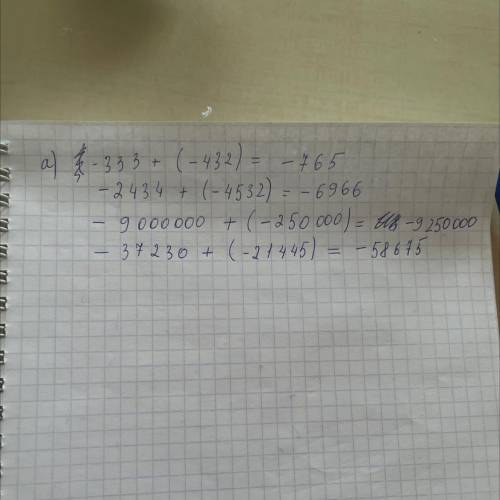 а) -333 + (-432) = -765
-2434 + (-4532) = -6966
- 9000000 + (-250000) = -9250000
- 37230 + (-21445) = -58675